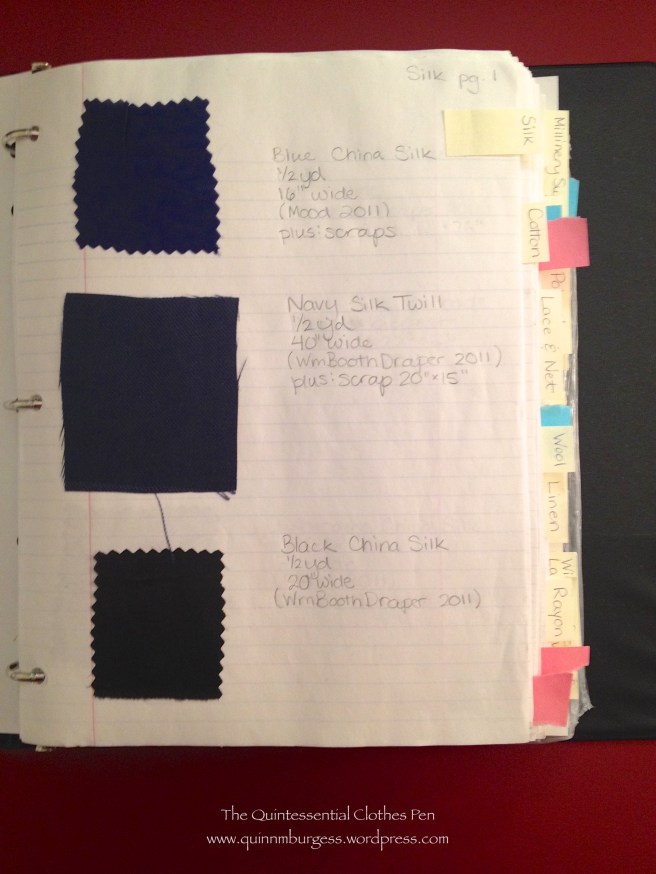 Silk pg. 1
Blue China Silk
1/2 yd
16" wide
(Mood 2011)
plus: scraps
Navy Silk Twill
1/2 yd
40" wide
(WmBoothDraper 2011)
plus: scrap 20"×15"
Black China Silk
1/2 yd
20" wide
(WmBoothDraper 2011)
Silk
Millinery
Cotton
Lace & Net
Wool
Linen
Rayon
The Quintessential Clothes Pen
www.quinnmburgess.wordpress.com